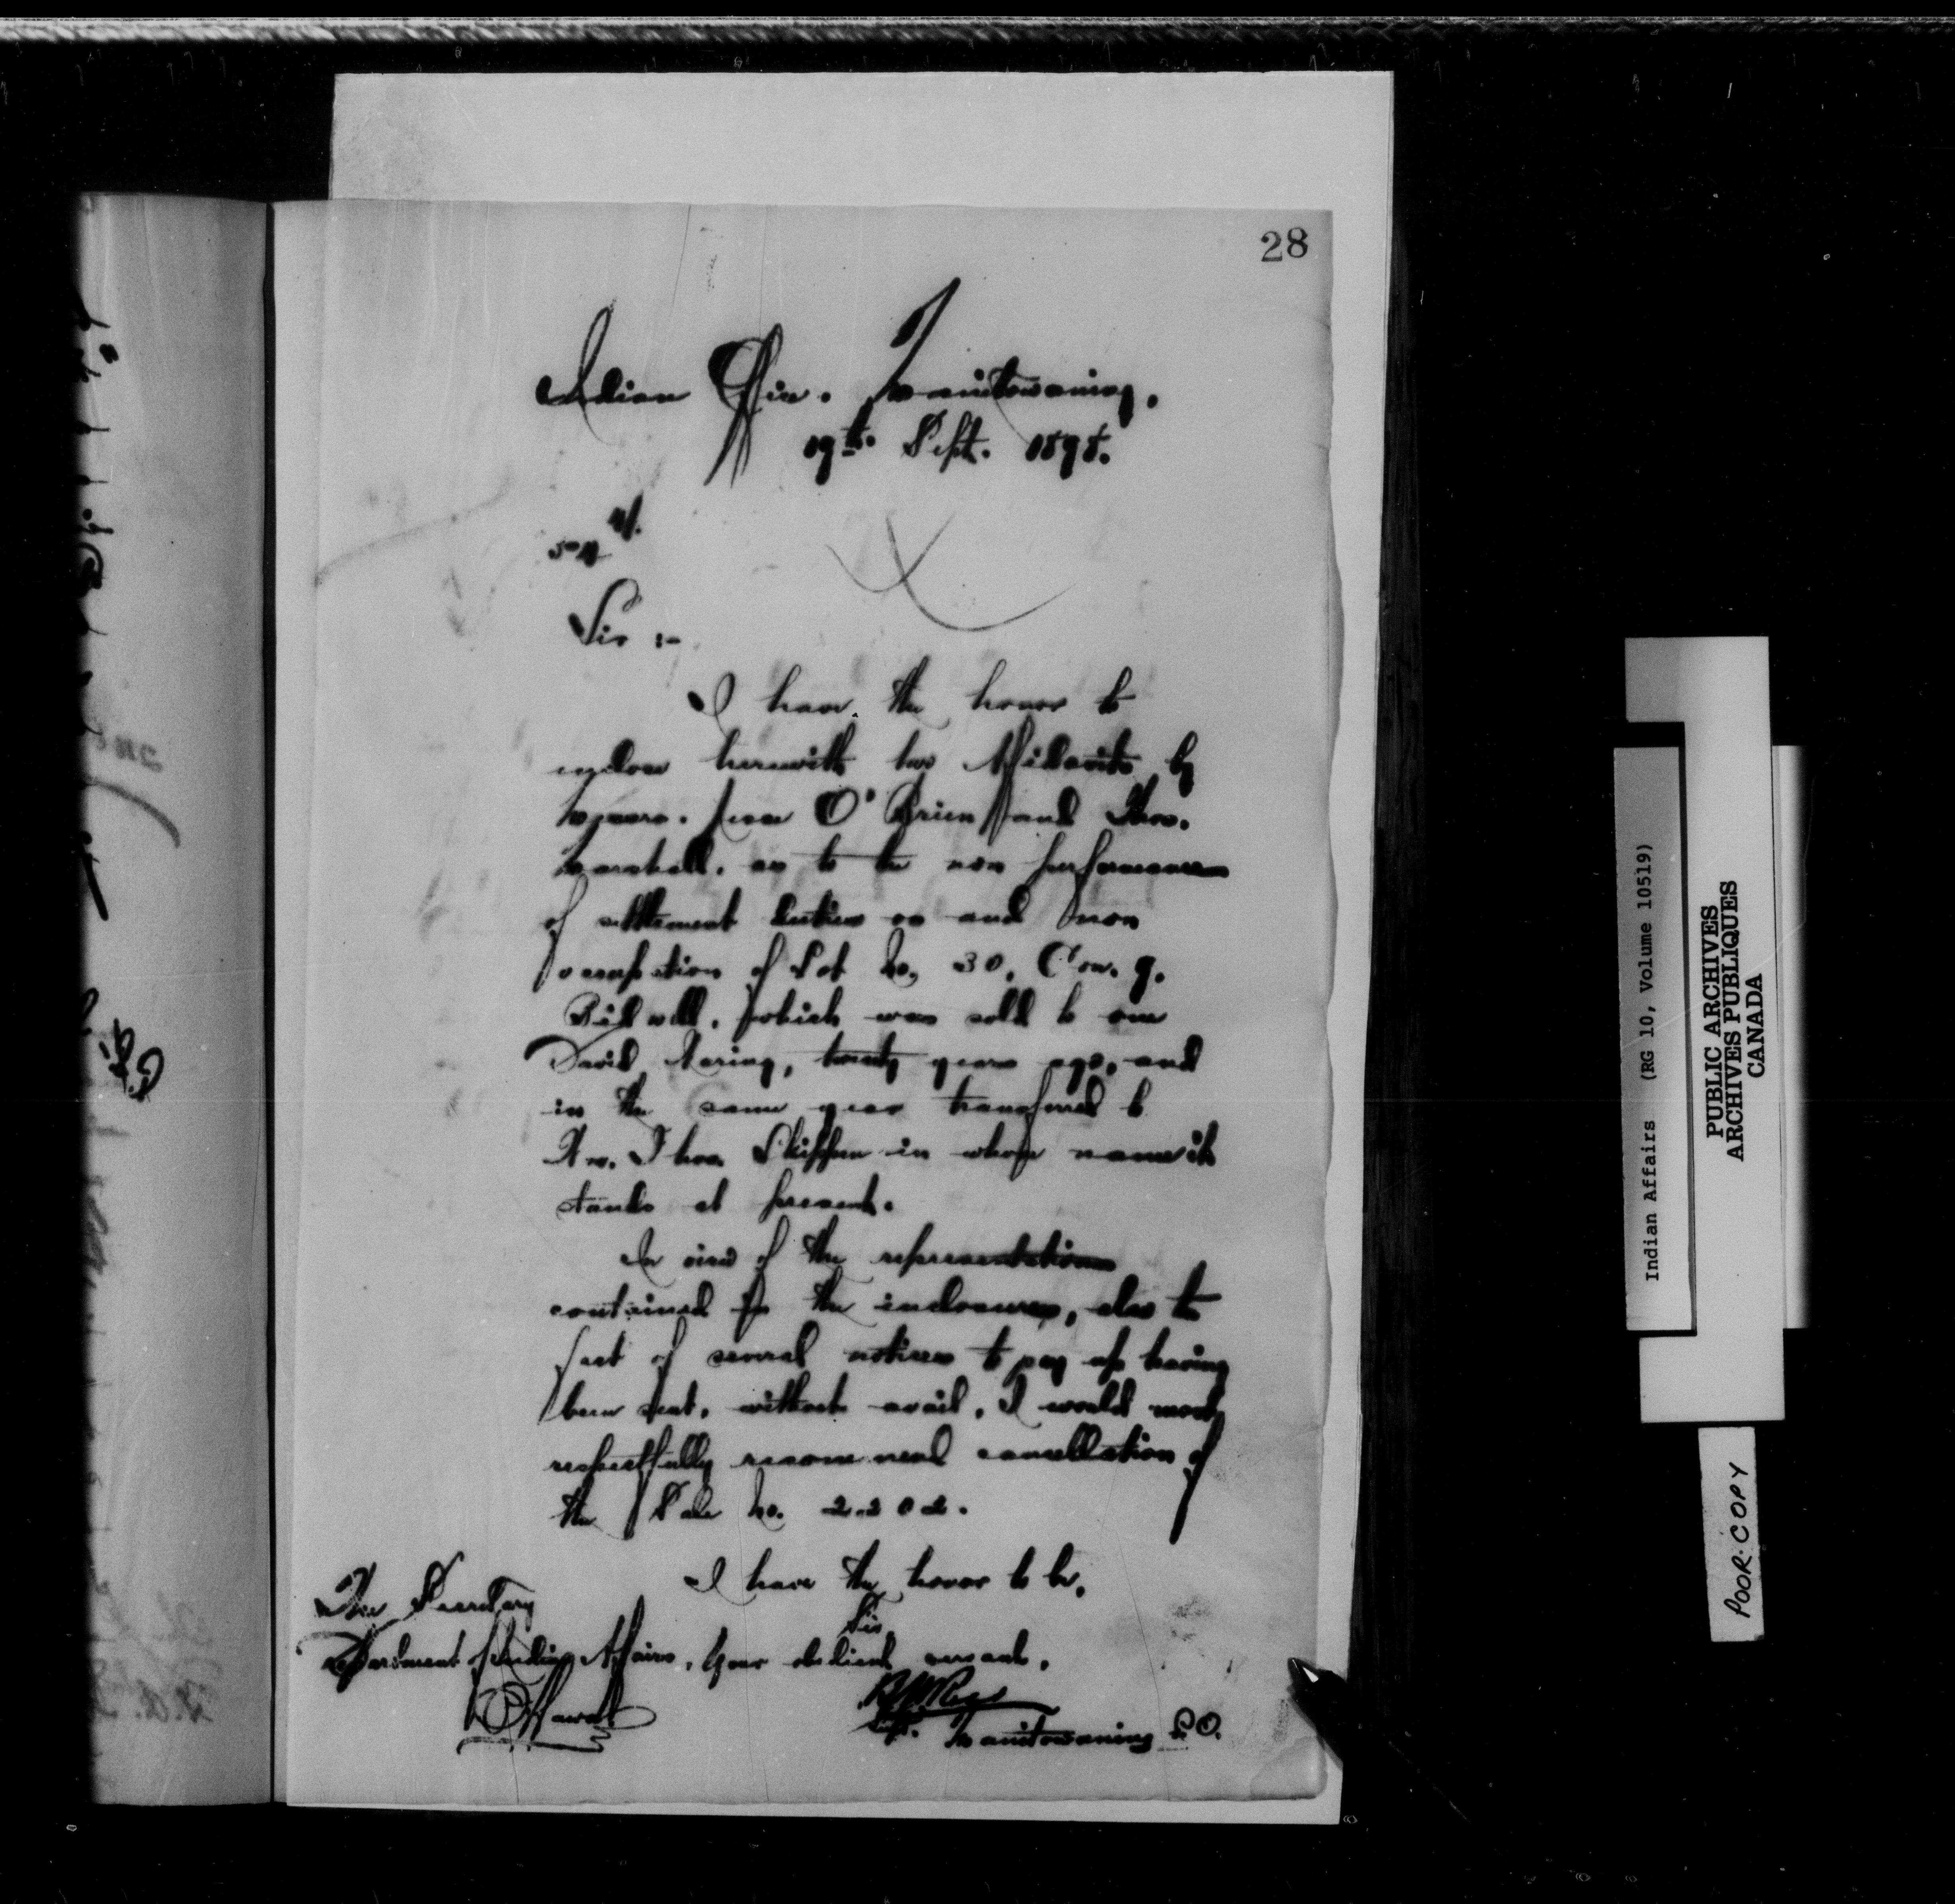 28
Indian Office. Manitowaning.
19th. Sept. 1895.
Sir :-
I have the honor to
enclose herewith two Affidavits by
Messrs. O'Brien and Thos.
Marshall, as to the non performance
of settlement duties on and non
occupation of Lot No. 30, Con. 9.
Bidwell, which was sold to one
David, twenty years ago, and
in the same year transferred to
Mr. Thos. Skippen in whose name it
stands at present.
In view of the representations
contained in the inclosures, also the
fact of several notices to pay up having
been sent, without avail, I would most
respectfully recommend cancellation of
the Sale No. 2202.
I have the honor to be,
Sir,
Your obedient servant,
Supt.
Manitowaning P.O.
The Secretary
Department of Indian Affairs,
Ottawa
Indian Affairs (RG 10, Volume 10519)
PUBLIC ARCHIVES
ARCHIVES PUBLIQUES
CANADA
POOR COPY